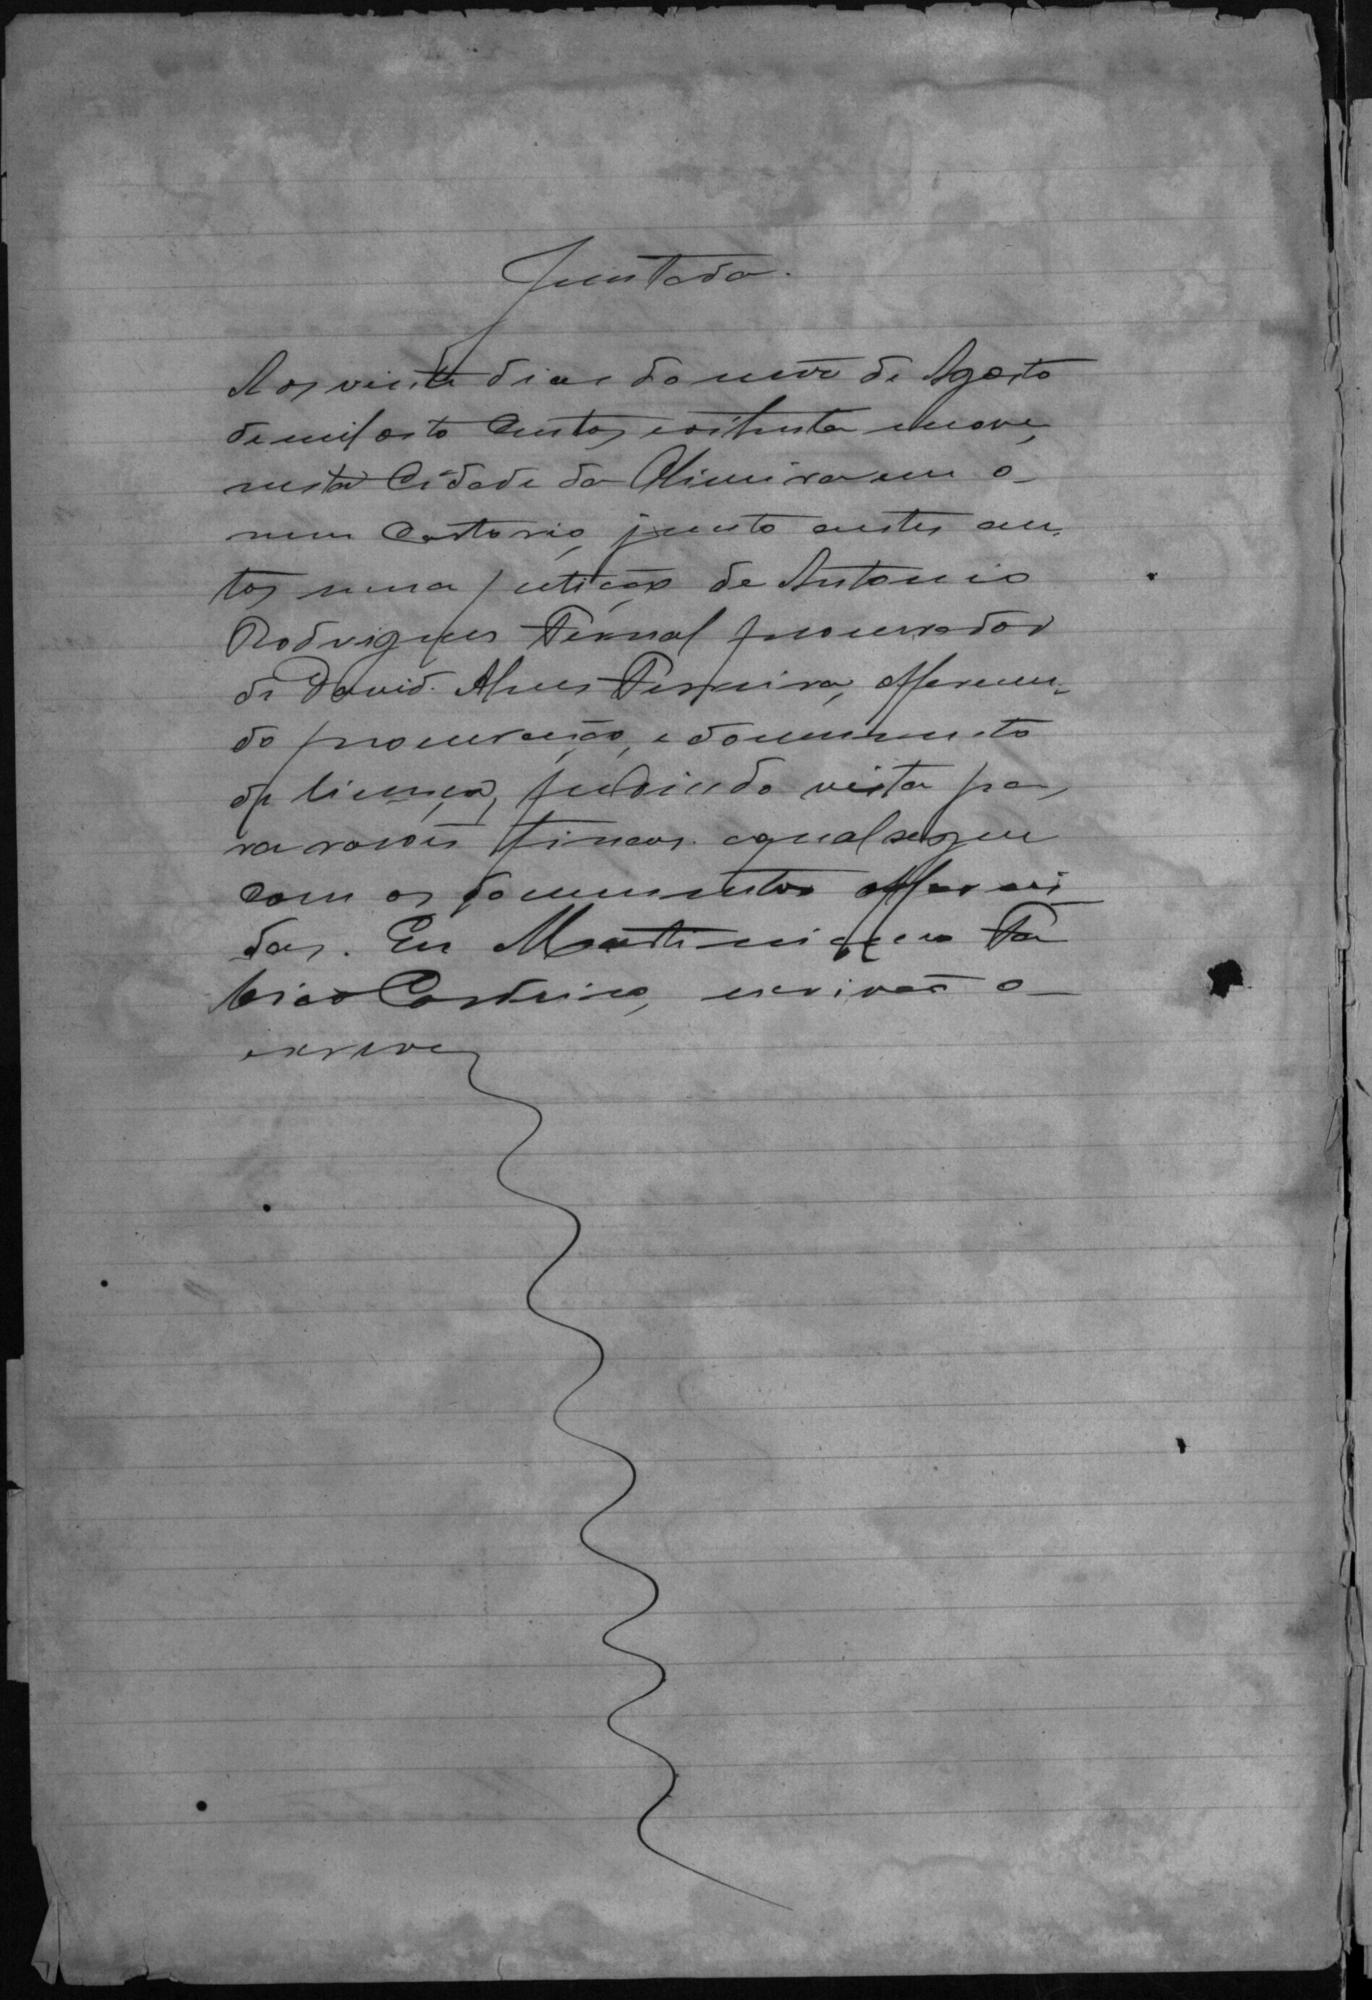 Juntada.
Aos vinte dias do mez de Agosto
de mil oito centos e oitenta e nove,
nesta Cidade da Limeira em o
meu Cartorio, junto a estes au-
tos uma petição de Antonio
Rodrigues Fernal procurador
de David Alves Ferreira, offerecen-
do procuração, e documento
de licença, pedindo vista pa-
ra rasões finaes. a qual segue
com os documentos offereci
dos. Eu Martiniano Fa
bricio Cordeiro, escrivão o
escrevi